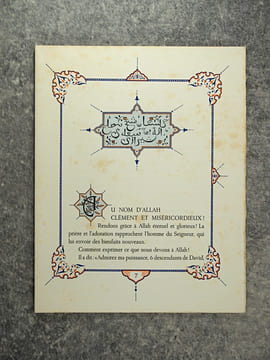 AU NOM D'ALLAH
CLÉMENT ET MISÉRICORDIEUX !
Rendons grâce à Allah éternel et glorieux ! La
prière et l'adoration rapprochent l'homme du Seigneur, qui
lui envoie des bienfaits nouveaux.
Comment exprimer ce que nous devons à Allah !
Il a dit : « Admirez ma puissance, ô descendants de David,
7